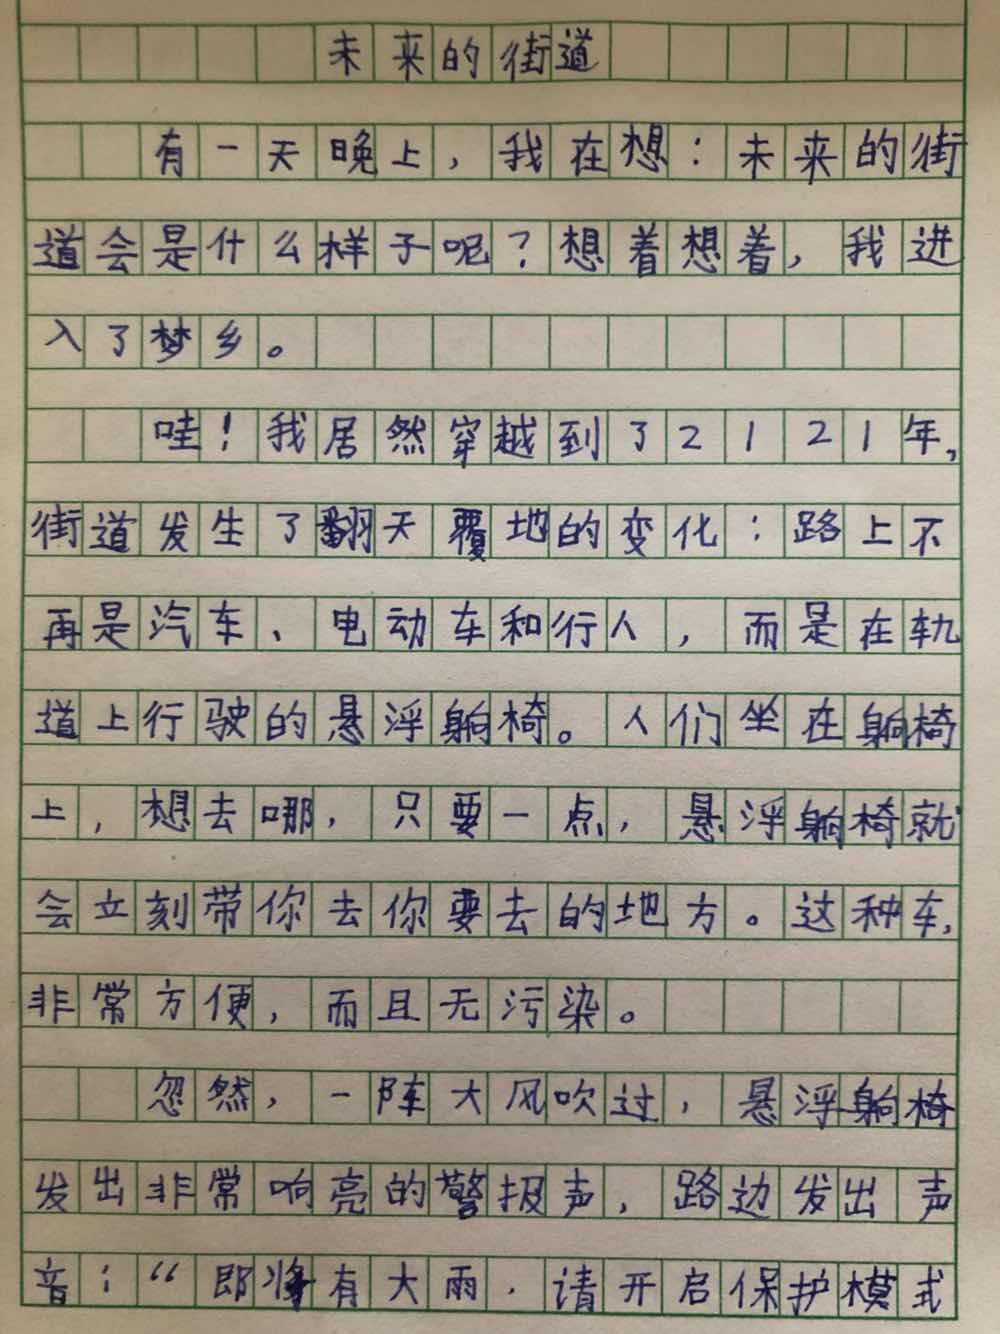 未来的街道
有一天晚上，我在想：未来的街
道会是什么样子呢？想着想着，我进
入了梦乡。
哇！我居然穿越到了2121年，
街道发生了翻天覆地的变化：路上不
再是汽车、电动车和行人，而是在轨
道上行驶的悬浮躺椅。人们坐在躺椅
上，想去哪，只要一点，悬浮躺椅就
会立刻带你去你要去的地方。这种车，
非常方便，而且无污染。
忽然，一阵大风吹过，悬浮躺椅
发出非常响亮的警报声，路边发出声
音：“即将有大雨，请开启保护模式